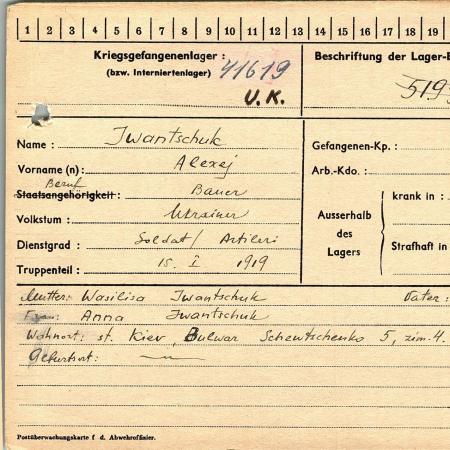 1 2 3 4 5 6 7 8 9 10 11 12 13 14 15 16 17 18 19
Kriegsgefangenenlager : 41619
(bzw. Interniertenlager)
U. K.
Beschriftung der Lager-E
519
Name : Iwantschuk
Vorname (n) : Alexej
Beruf
Staatsangehörigkeit : Bauer
Volkstum : Ukrainer
Dienstgrad : Soldat/ Artileri
Truppenteil : 15. I 1919
Gefangenen-Kp. :
Arb.-Kdo. :
Ausserhalb des Lagers
krank in :
Strafhaft in
Mutter: Wasilisa Iwantschuk Vater:
Frau: Anna Iwantschuk
Wohnort: st. Kiev, Bulwar Schewtschenko 5, zim. 4.
Geburtsort: —
Postüberwachungskarte f d. Abwehroffizier.